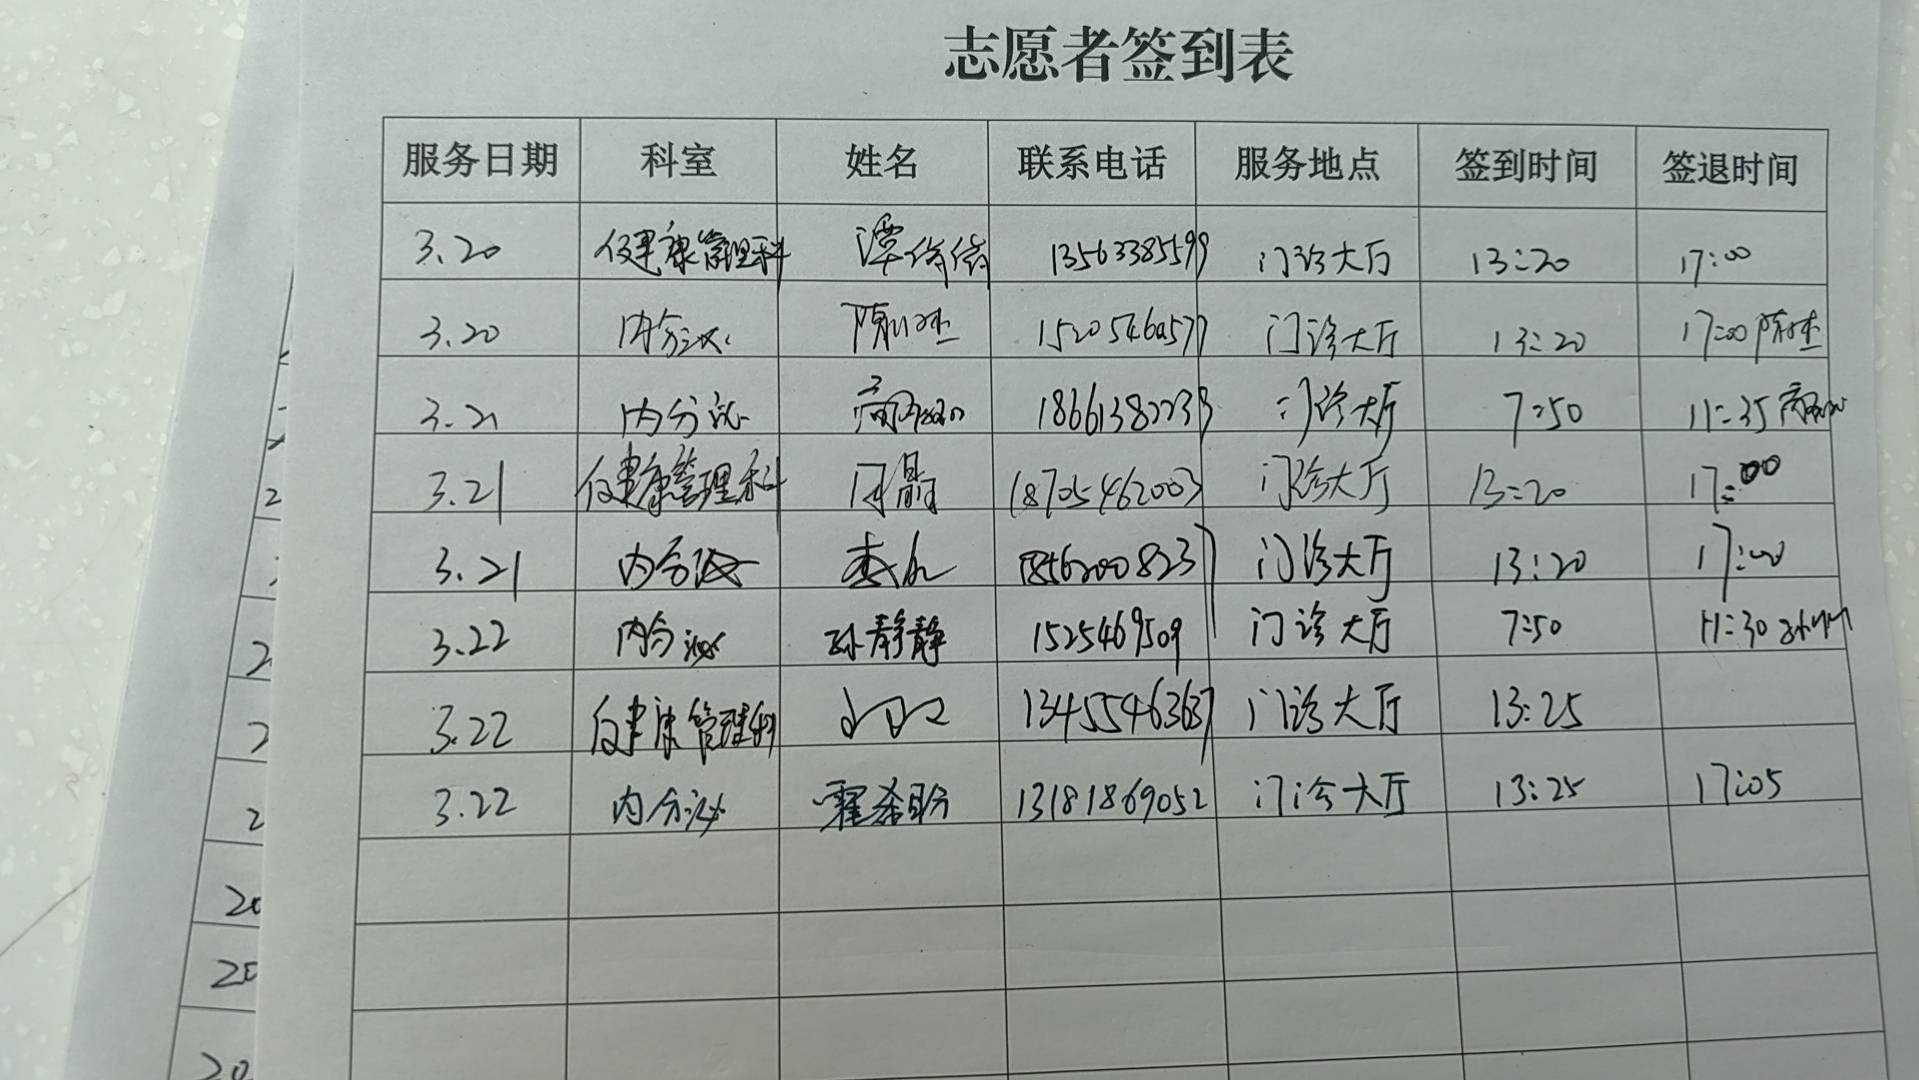 志愿者签到表
服务日期 科室 姓名 联系电话 服务地点 签到时间 签退时间
3.20 健康管理科 谭 13563385599 门诊大厅 13:20 17:00
3.20 内分泌 门诊大厅 13:20 17:00
3.21 内分泌 18661382239 门诊大厅 7:50 11:35
3.21 健康管理科 闫晶 18705462003 门诊大厅 13:20 17:00
3.21 内分泌 门诊大厅 13:20 17:00
3.22 内分泌 孙静静 门诊大厅 7:50 11:30
3.22 健康管理科 13455463637 门诊大厅 13:25
3.22 内分泌 翟希盼 13181869052 门诊大厅 13:25 17:05